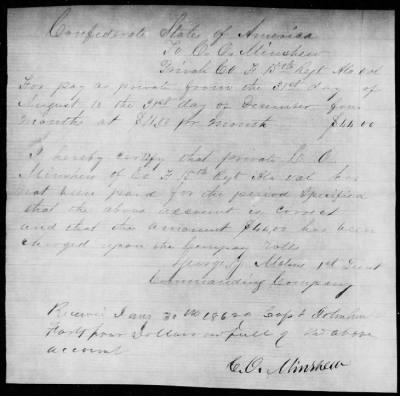 Confederate States of America
To C. O. Minshew
Private Co F 15th Regt Ala vol
For pay as private from the 31st day of
August to the 31st day of December four
months at $11.00 pr month $44.00
I hereby certify that private C. O.
Minshew of Co F 15th Regt Ala vol has
not been paid for the period specified
that the above account is correct
and that the amount $44.00 has been
charged upon the Company rolls
George Y. 1st Lieut
Commanding Company
Received Jany 30th 186 Capt
Forty four Dollars in full of the above
account
C. O. Minshew